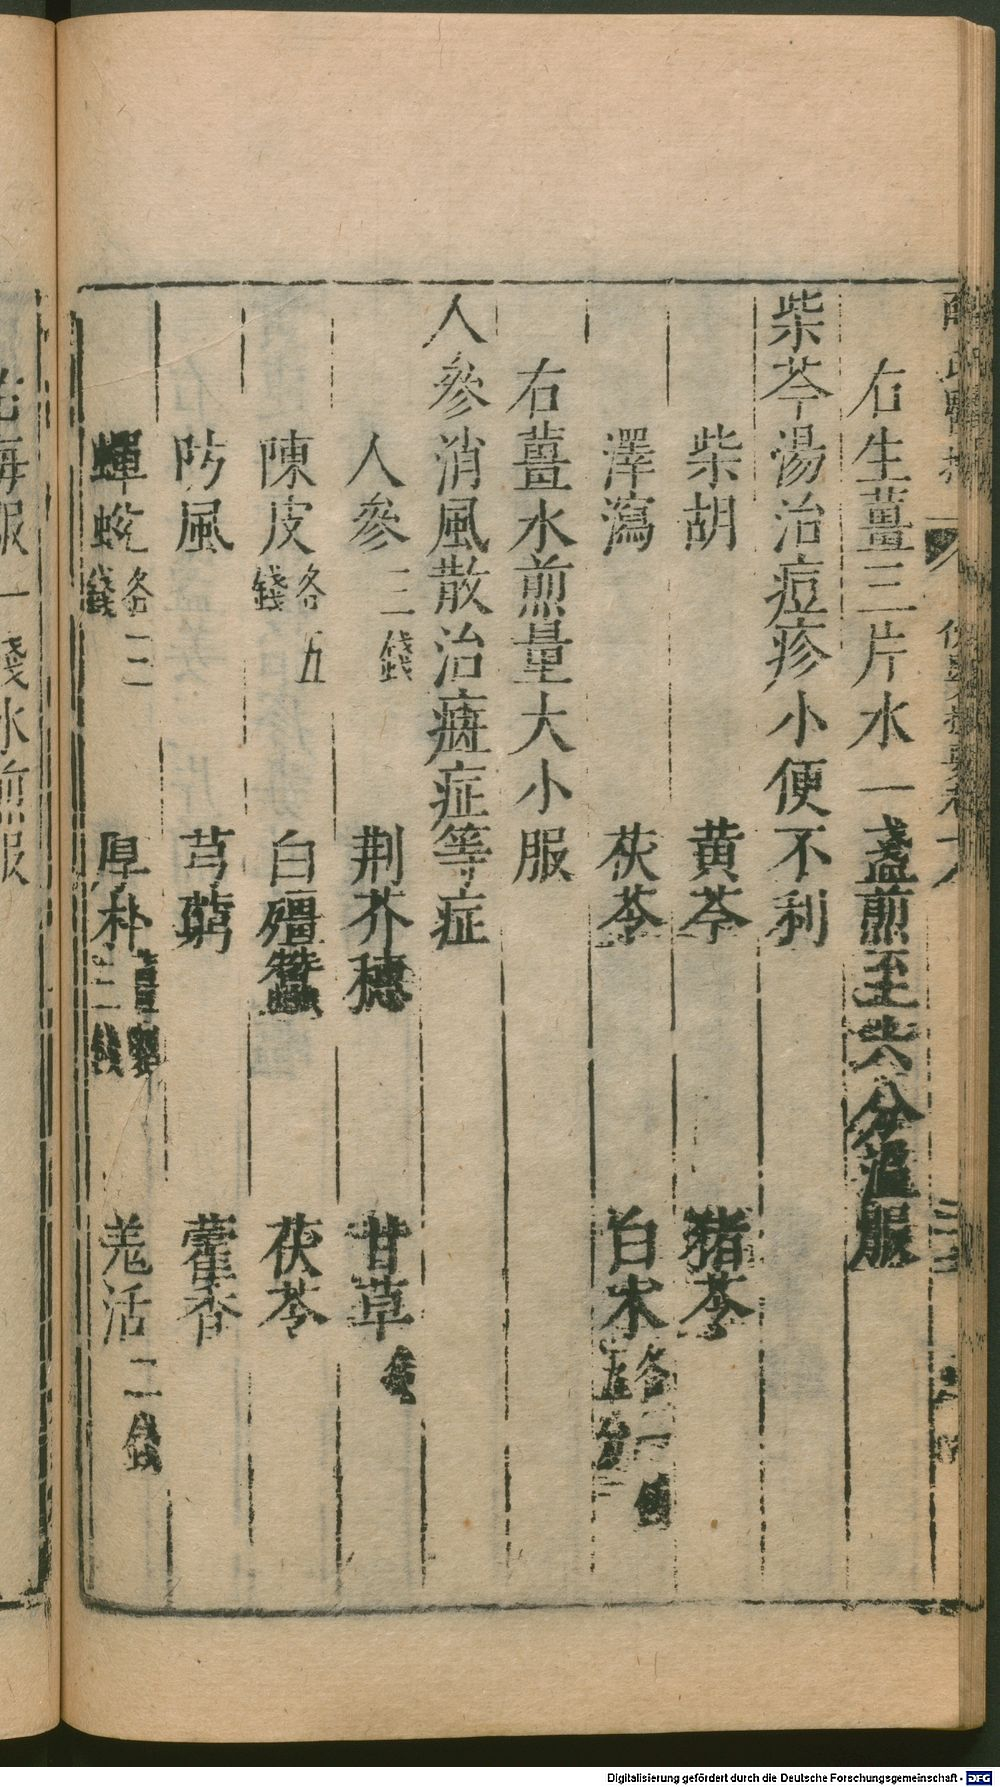 右生薑三片水一盞煎至六分溫服
柴苓湯治痘疹小便不利
柴胡 黄芩 猪苓
澤瀉 茯苓 白朮各一錢五分
右薑水煎量大小服
人參消風散治癍症等症
人參三錢 荆芥穗 甘草
陳皮各五錢 白殭蠶 茯苓
防風 芎藭 藿香
蟬蛻各二錢 厚朴三錢 羌活二錢
每服一錢水煎服
Digitalisierung gefördert durch die Deutsche Forschungsgemeinschaft - DFG